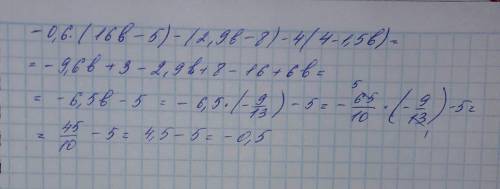 -0,6·(16в-5)-(2,9в-8)-4(4-1,5в)=
= -9,6в+3-2,9в+8-16+6в=
= -6,5в-5 = -6,5·(-9/13)-5= -65/10·(-9/13)-5= 5 1
= 45/10 -5 = 4,5-5 = -0,5